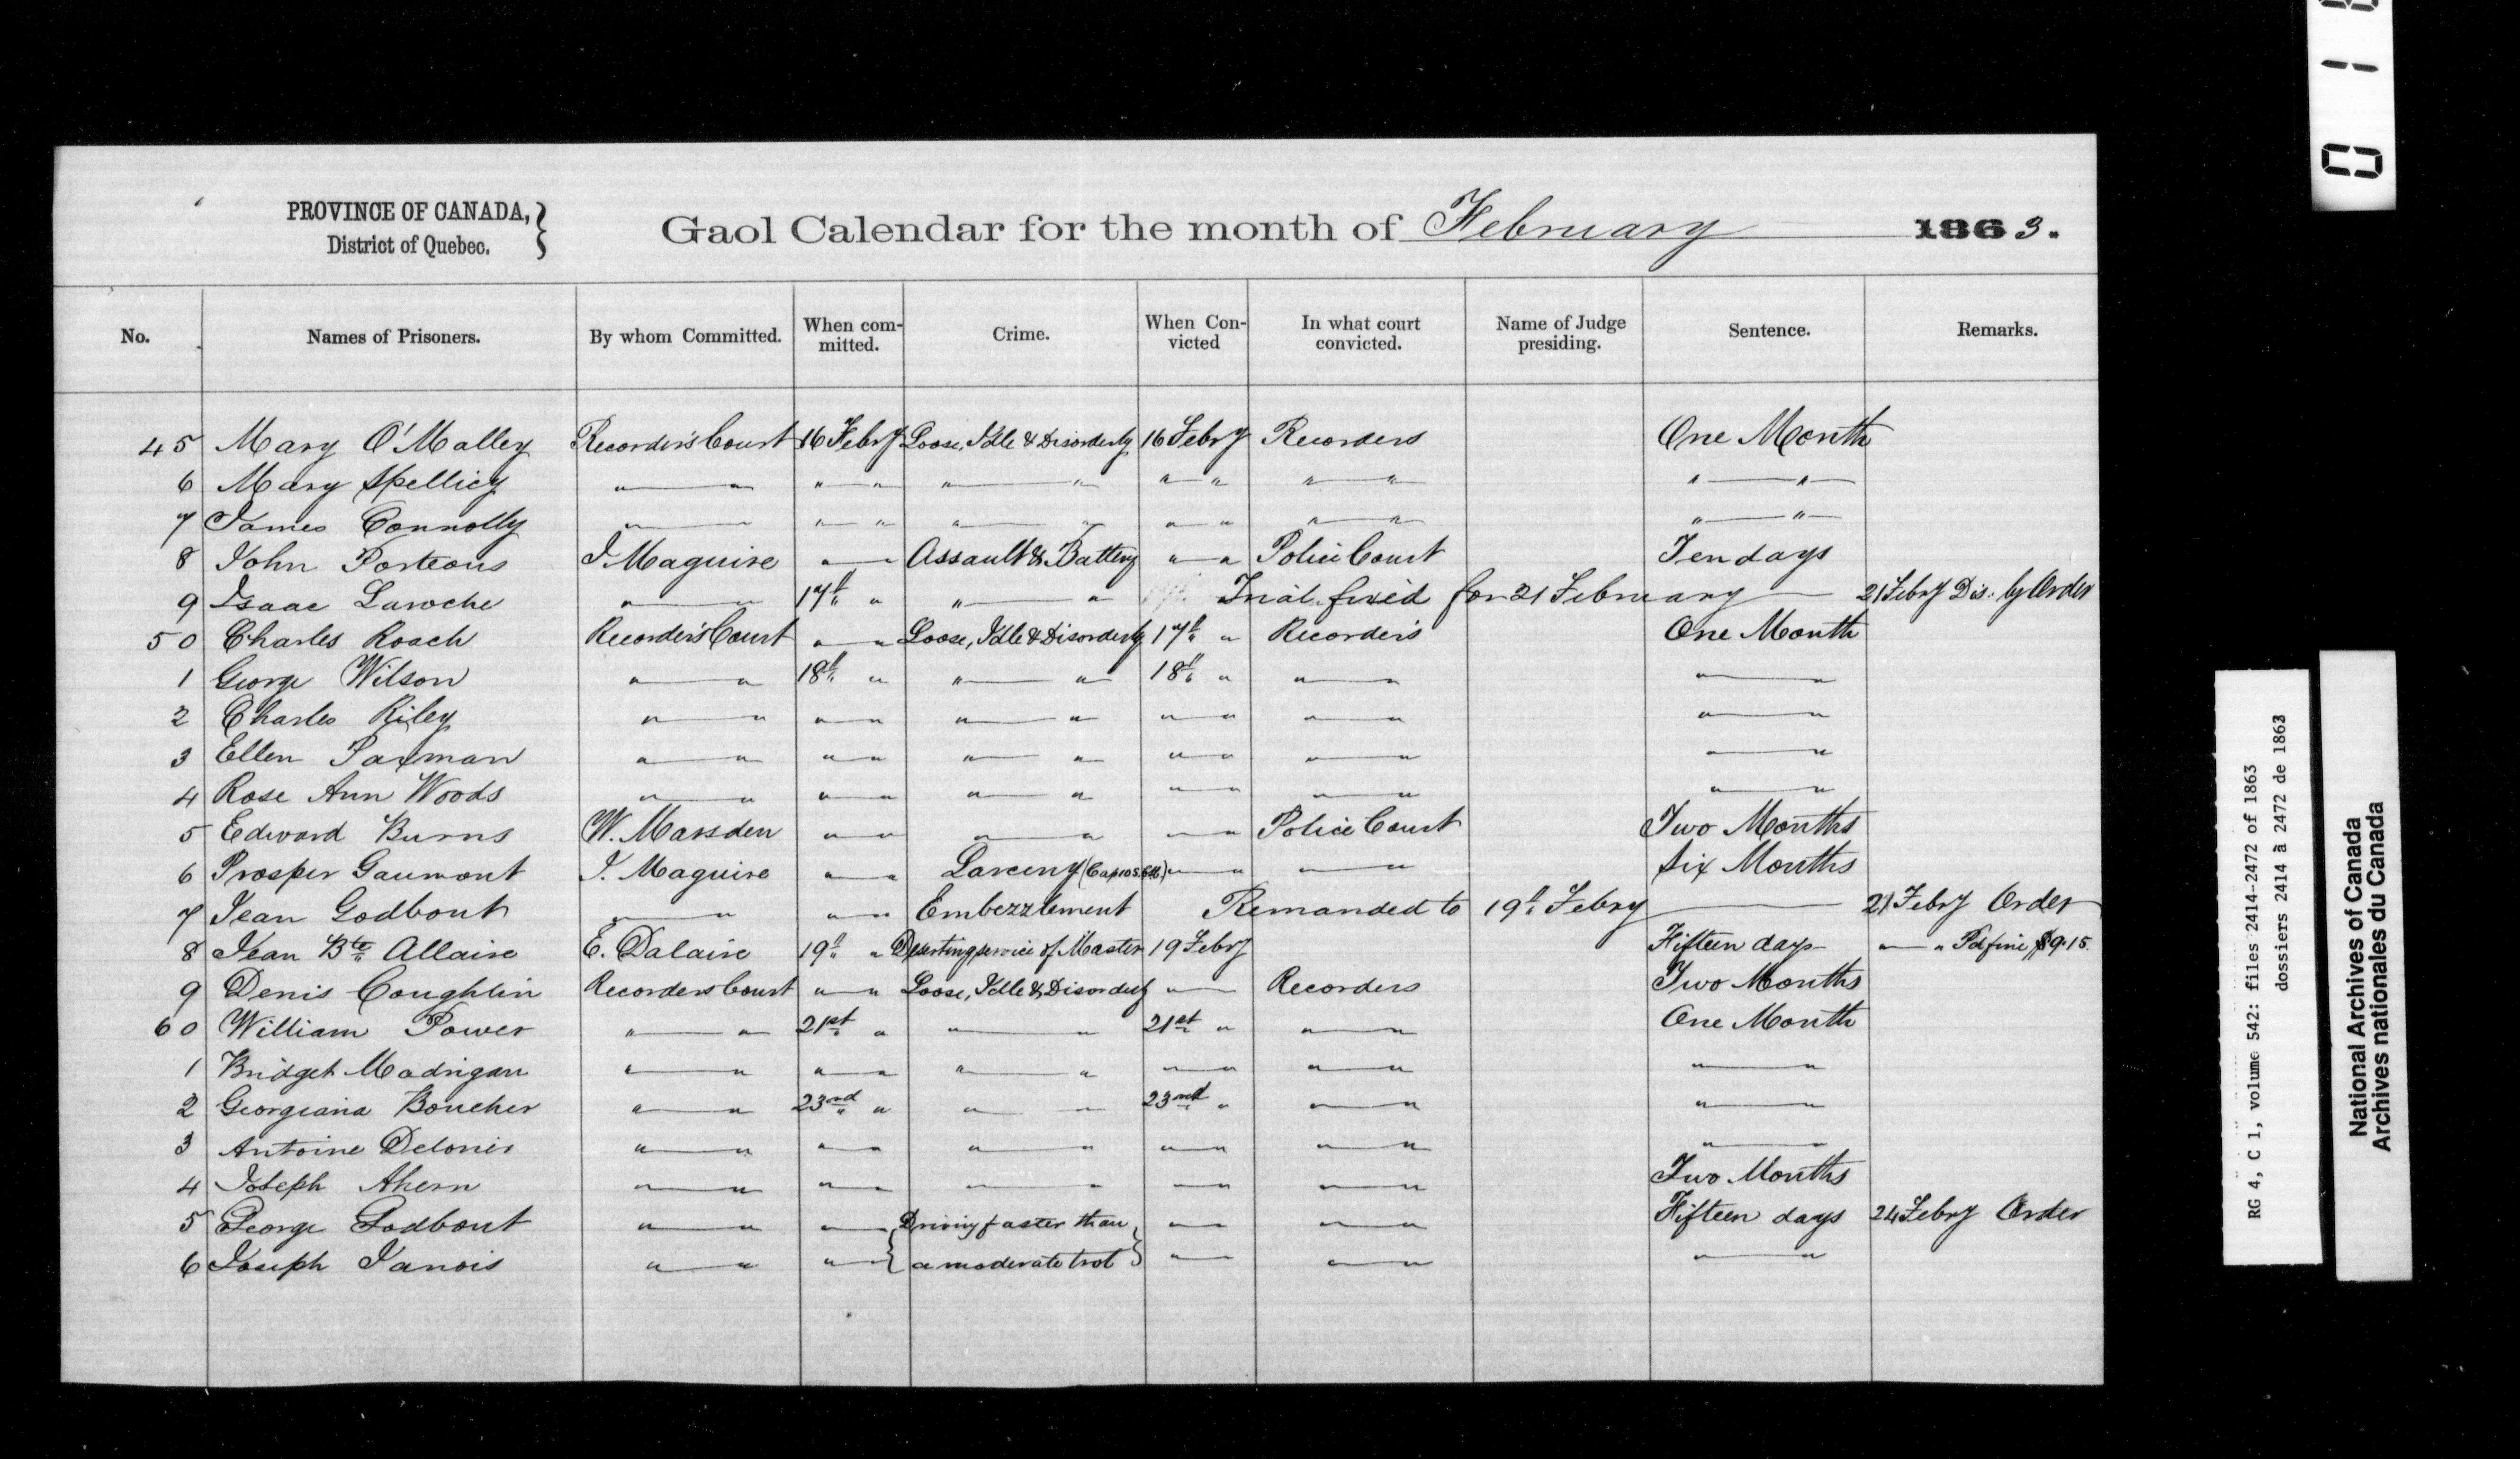 PROVINCE OF CANADA,
District of Quebec.
Gaol Calendar for the month of February 1863.
No. Names of Prisoners. By whom Committed. When committed. Crime. When Convicted In what court convicted. Name of Judge presiding. Sentence. Remarks.
45 Mary O'Malley Recorder's Court 16 Febry Loose, Idle & Disorderly 16 Febry Recorders One Month
6 Mary Spellicy " " " " " " " " " " " "
7 James Connolly " " " " " " " " " " " "
8 John Porteous J. Maguire " Assault & Battery " " Police Court Ten days
9 Isaac Laroche " " 17th " " " Trial fixed for 21 February 21 Febry Dis. by Order
50 Charles Roach Recorder's Court " " Loose, Idle & Disorderly 17th " Recorder's One Month
1 George Wilson " " 18th " " " 18th " " " " "
2 Charles Riley " " " " " " " " " " " "
3 Ellen Paxman " " " " " " " " " " " "
4 Rose Ann Woods " " " " " " " " " " " "
5 Edward Burns W. Marsden " " " " " " Police Court Two Months
6 Prosper Gaumont J. Maguire " " Larceny " " " " Six Months
7 Jean Godbout " " " " Embezzlement Remanded to 19th Febry 21 Febry Order
8 Jean Bte Allaire E. Dalaire 19th " Deserting service of Master 19 Febry Fifteen days " " Pd fine $9.15.
9 Denis Coughlin Recorders Court " " Loose, Idle & Disorderly " Recorders Two Months
60 William Power " " 21st " " " 21st " " " One Month
1 Bridget Madrigan " " " " " " " " " " " "
2 Georgiana Boucher " " 23rd " " " 23rd " " " " "
3 Antoine Delonier " " " " " " " " " " " "
4 Joseph Ahern " " " " " " " " " " Two Months
5 George Godbout " " " Driving faster than " " " " Fifteen days 24 Febry Order
6 Joseph Janois " " " a moderate trot " " " " " "
RG 4, C 1, volume 542: files 2414-2472 of 1863
dossiers 2414 à 2472 de 1863
National Archives of Canada
Archives nationales du Canada